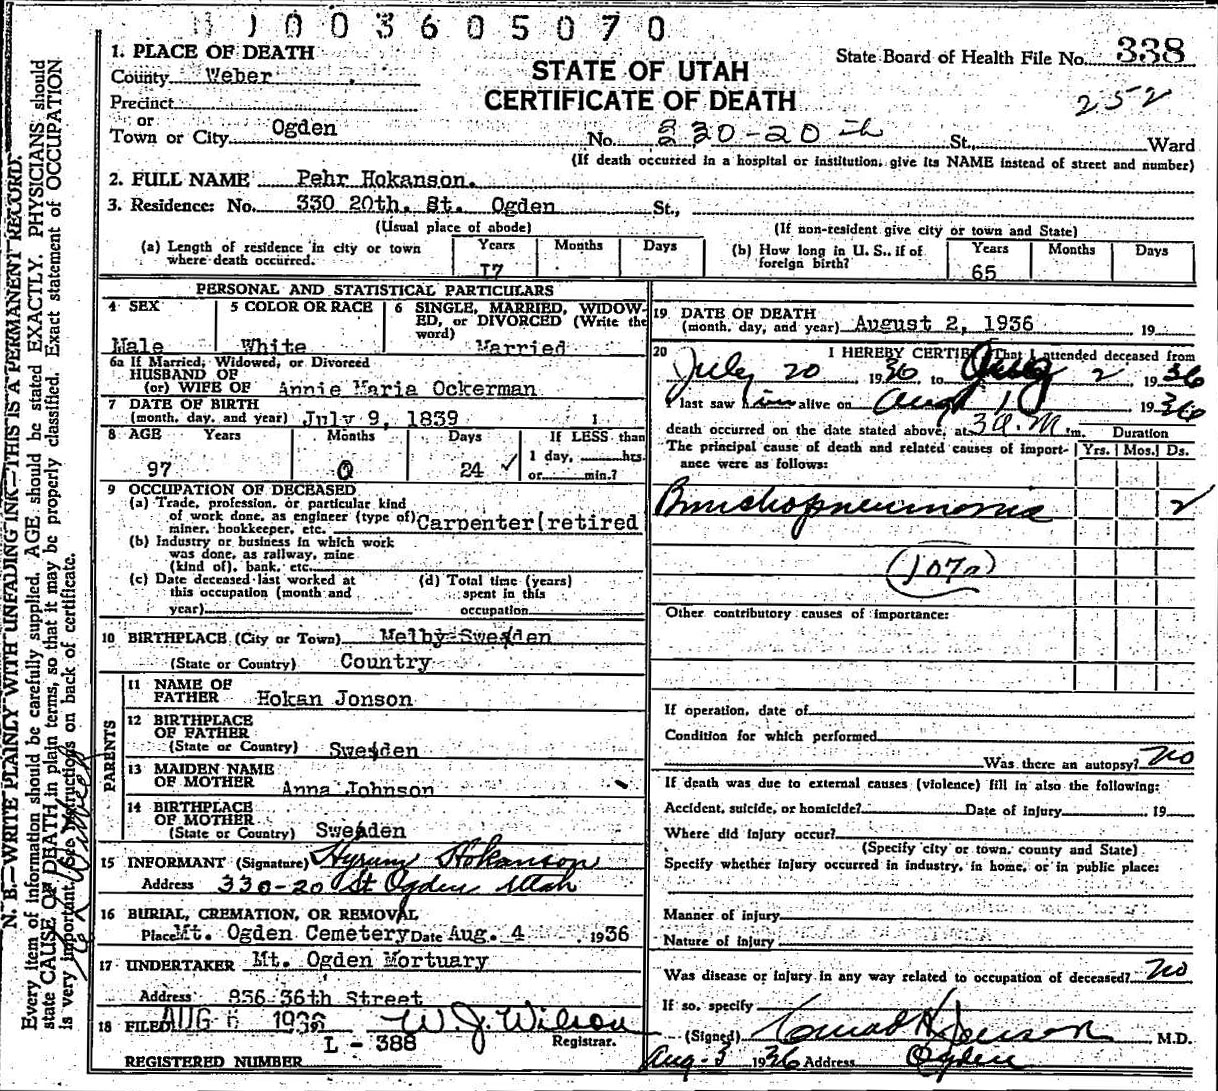 1003605070
State Board of Health File No. 338
STATE OF UTAH
CERTIFICATE OF DEATH
252
1. PLACE OF DEATH
County Weber
Precinct
or
Town or City Ogden No. 330-20th St., Ward
(If death occurred in a hospital or institution, give its NAME instead of street and number)
2. FULL NAME Pehr Hokanson.
3. Residence: No. 330 20th. St. Ogden St.,
(Usual place of abode) (If non-resident give city or town and State)
(a) Length of residence in city or town where death occurred. Years 17 Months Days
(b) How long in U. S., if of foreign birth? Years 65 Months Days
PERSONAL AND STATISTICAL PARTICULARS
4 SEX Male
5 COLOR OR RACE White
6 SINGLE, MARRIED, WIDOWED, or DIVORCED (Write the word) Married
6a If Married, Widowed, or Divorced
HUSBAND OF
(or) WIFE OF Annie Maria Ockerman
7 DATE OF BIRTH
(month, day, and year) July 9, 1839
8 AGE Years 97 Months 0 Days 24 ✓ If LESS than 1 day, hrs. or min.?
9 OCCUPATION OF DECEASED
(a) Trade, profession, or particular kind
of work done, as engineer (type of)
miner, bookkeeper, etc. Carpenter(retired
(b) Industry or business in which work
was done, as railway, mine
(kind of), bank, etc.
(c) Date deceased last worked at
this occupation (month and
year)
(d) Total time (years)
spent in this
occupation
10 BIRTHPLACE (City or Town) Melby-Sweden
(State or Country) Country
PARENTS
11 NAME OF
FATHER Hokan Jonson
12 BIRTHPLACE
OF FATHER
(State or Country) Sweden
13 MAIDEN NAME
OF MOTHER Anna Johnson
14 BIRTHPLACE
OF MOTHER
(State or Country) Sweden
15 INFORMANT (Signature) Hyrum Hokanson
Address 330-20 St Ogden Utah
16 BURIAL, CREMATION, OR REMOVAL
Place Mt. Ogden Cemetery Date Aug. 4 1936
17 UNDERTAKER Mt. Ogden Mortuary
Address 836 36th Street
18 FILED AUG 6 1936 W. J. Wilson
Registrar.
L - 388
REGISTERED NUMBER
19 DATE OF DEATH
(month, day, and year) August 2, 1936 19
20 I HEREBY CERTIFY That I attended deceased from
July 20 1936 to Aug 2 1936
I last saw him alive on Aug 1 1936
death occurred on the date stated above, at 3 A.M. m. Duration
The principal cause of death and related causes of importance were as follows: Yrs. Mos. Ds.
Bronchopneumonia 2
(107a)
Other contributory causes of importance:
If operation, date of
Condition for which performed
Was there an autopsy? no
If death was due to external causes (violence) fill in also the following:
Accident, suicide, or homicide? Date of injury 19
Where did injury occur?
(Specify city or town, county and State)
Specify whether injury occurred in industry, in home, or in public place:
Manner of injury
Nature of injury
Was disease or injury in any way related to occupation of deceased? no
If so, specify
(Signed) Conrad H Jenson M.D.
Aug-3 1936 Address Ogden
N. B.—WRITE PLAINLY WITH UNFADING INK—THIS IS A PERMANENT RECORD.
Every item of information should be carefully supplied. AGE should be stated EXACTLY. PHYSICIANS should
state CAUSE OF DEATH in plain terms, so that it may be properly classified. Exact statement of OCCUPATION
is very important. See instructions on back of certificate.